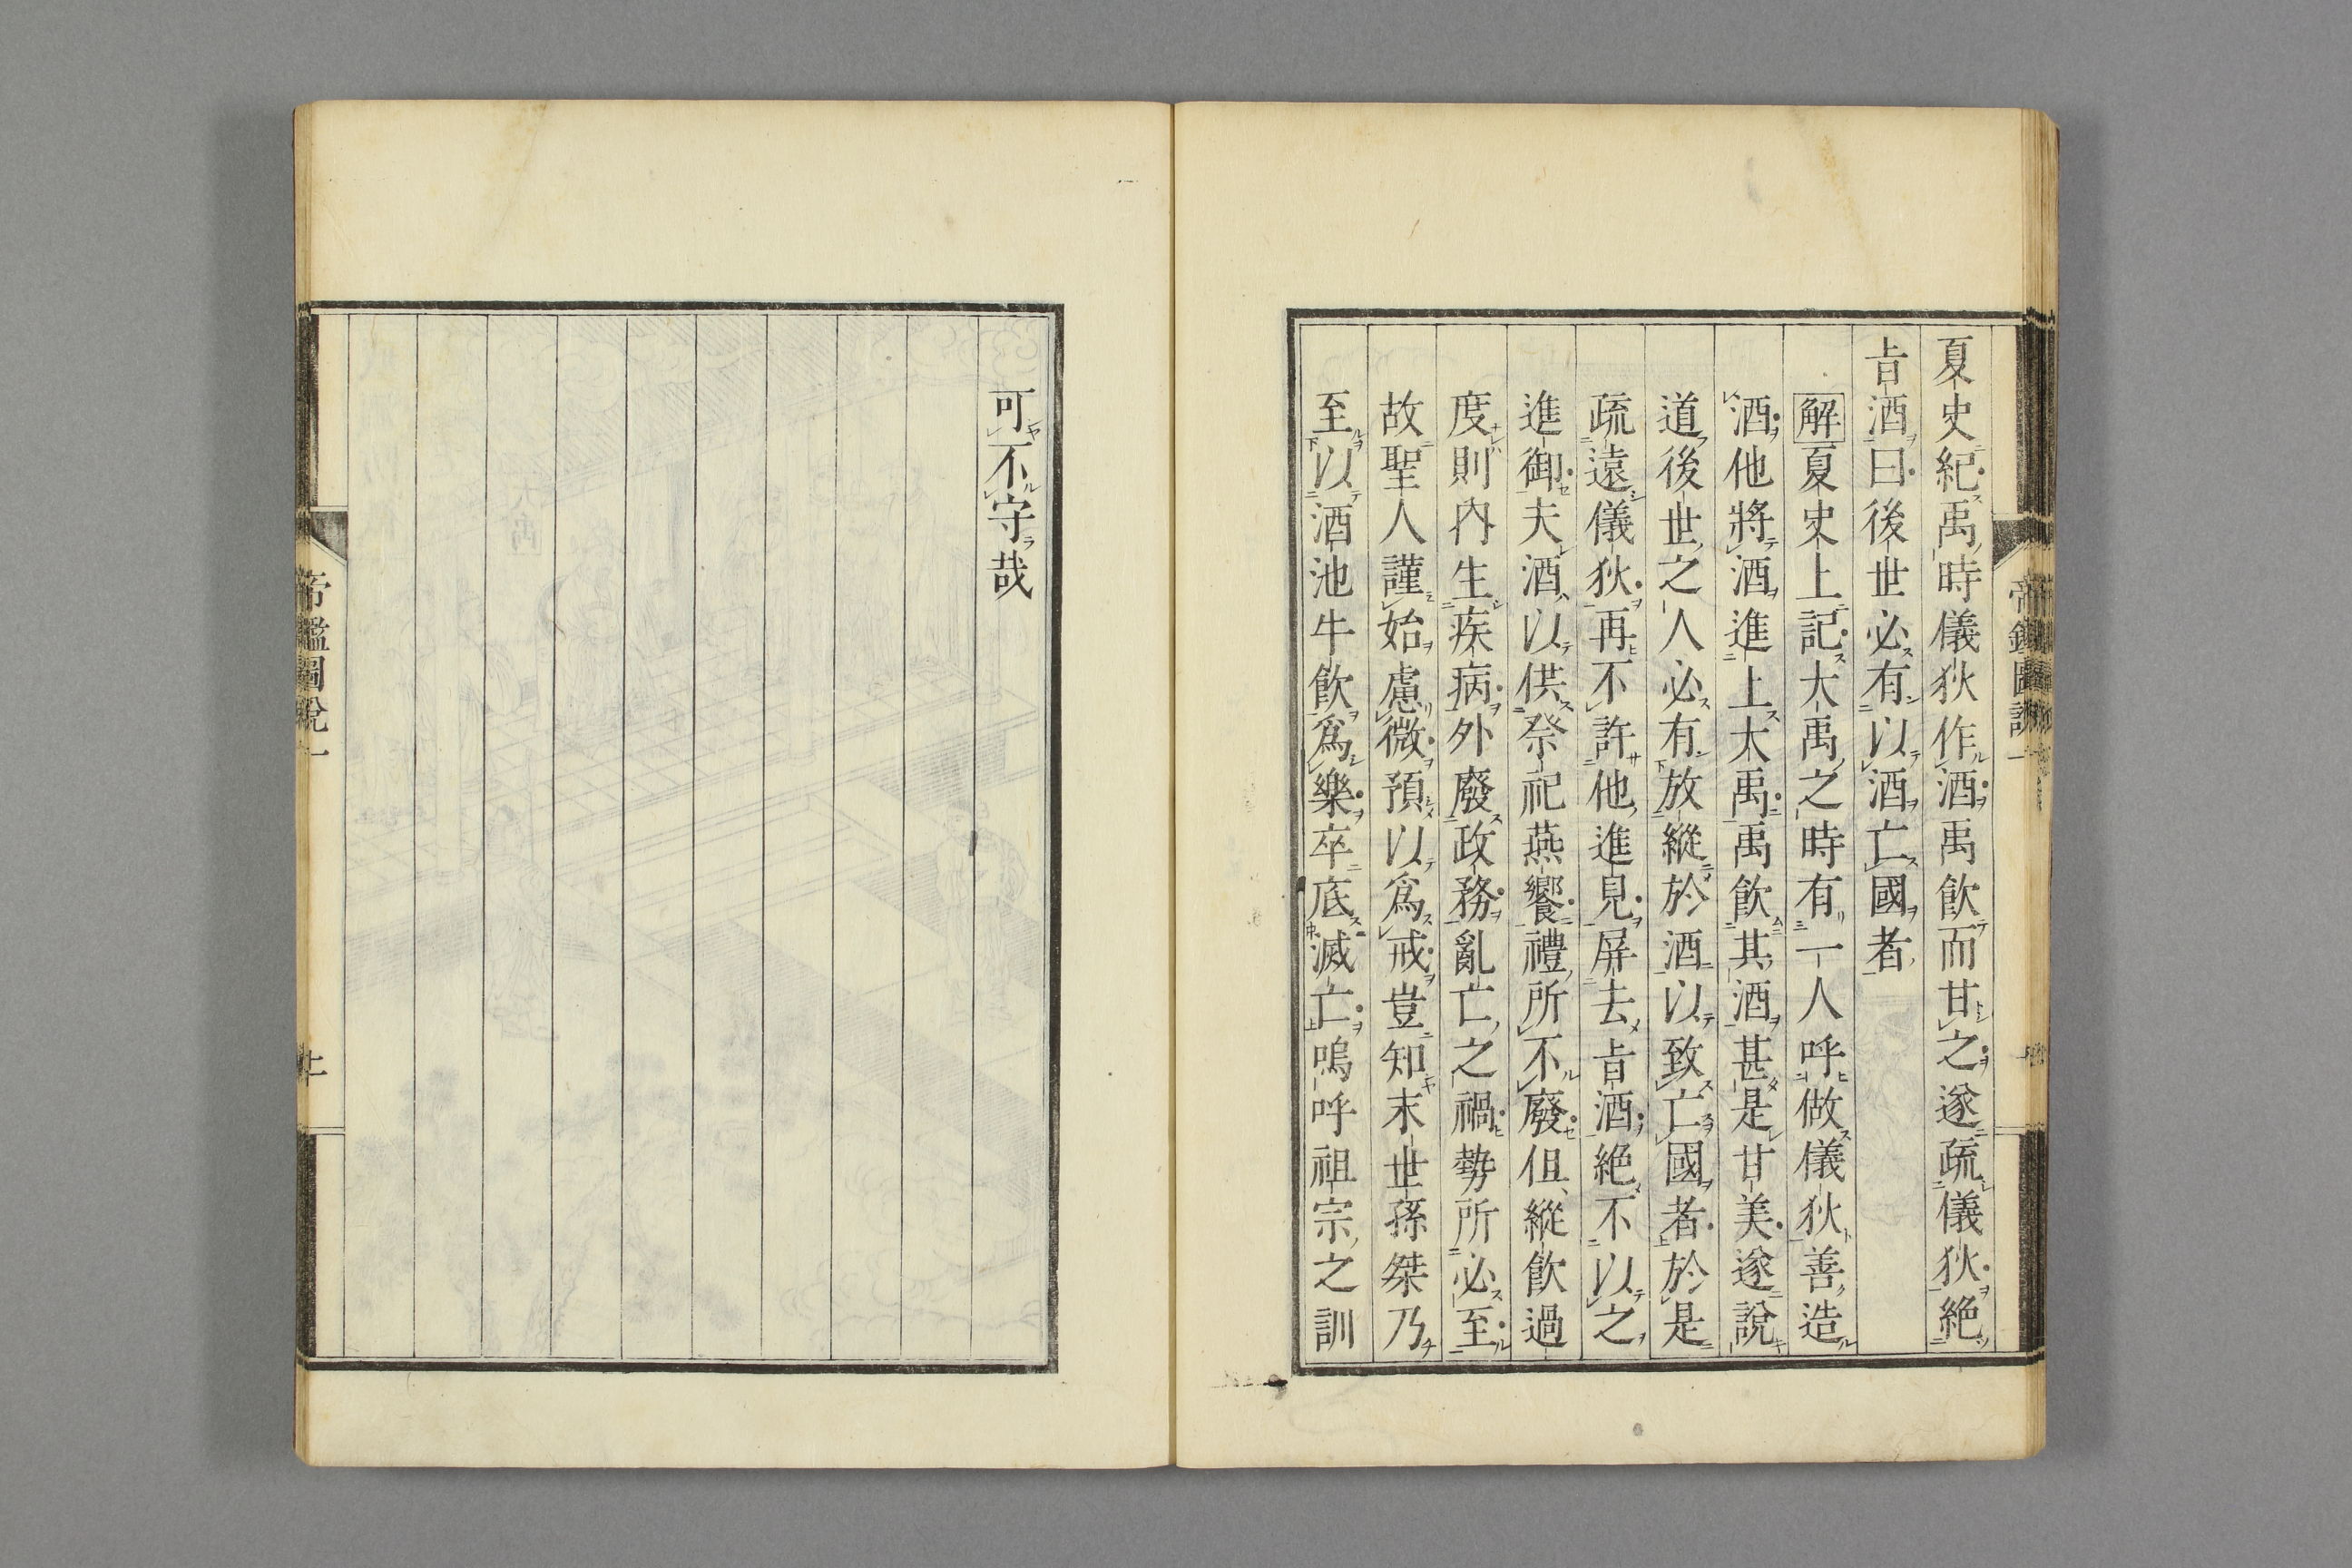 夏史紀禹時儀狄作酒禹飲而甘之遂疏儀狄絶
旨酒曰後世必有以酒亡國者
解夏史上記大禹之時有一人呼做儀狄善造
酒他將酒進上大禹禹飲其酒甚是甘美遂說
道後世之人必有放縱於酒以致亡國者於是
疏遠儀狄再不許他進見屏去旨酒絶不以之
進御夫酒以供祭祀燕饗禮所不廢但縱飲過
度則內生疾病外廢政務亂亡之禍勢所必至
故聖人謹始慮微預以爲戒豈知末世孫桀乃
至以酒池牛飲爲樂卒底滅亡嗚呼祖宗之訓
可不守哉
帝鑑圖說一